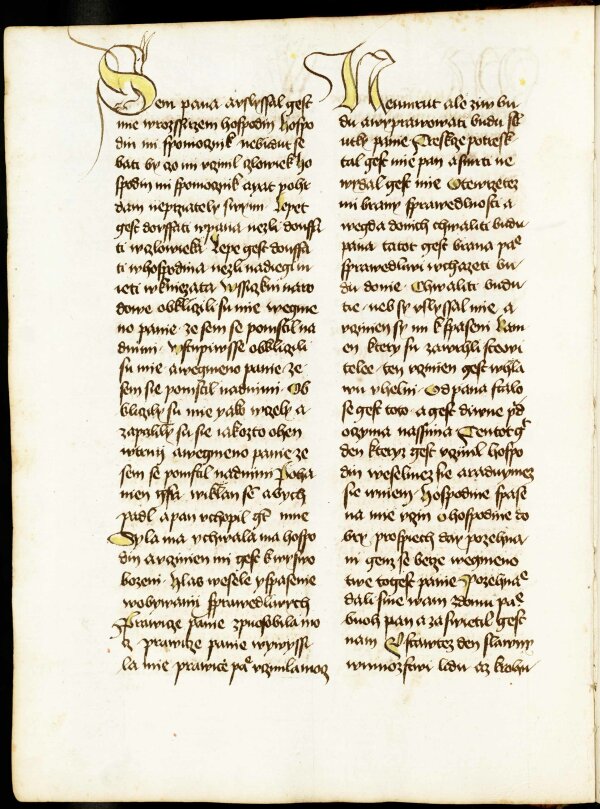 Sem pana a vslyssal gest
mie wrozssirzem hospodin hospo
din mi spomoznik nebudut se
bati by czo mi vczinil czlowiek ho
spodin mi spomoznik a yat pohr
dam neprzately swymi Lepet
gest dovffati wpana nezli douffa
ti wczlowieka Lepe gest douffa
ti whospodina nezli nadiegi m
ieti wkniezata Wssiczkni naro
dowe obkliczili su mie wegme
no panie ze sem se pomstil na
dnimi Vstupiwsse obkliczili
su mie a wegmeno panie ze
sem sie pomstil nadnimi Ob
kliczily su mie yako wczely a
zapalily su sie iakozto ohen
wtrni a wegmeno panie ze
sem se pomstil nadnimi Poha
nien gsa wiklan sem abych
padl a pan vchopil gest mne
Syla ma y chwala ma hospo
din a vczinien mi gest k wyswo
bozeni Hlas wesele y spasenie
wobywani sprawedliwych
Prawicze panie zpuosobila mo
cz prawicze panie wywyssi
la mie prawice panie vczinila mocz
Neumrut ale ziw bu
du a wyprawowati budu sk
utky panie Treskze potresk
tal gest mie pan a smrti ne
wydal gest mie Otewrzetez
mi brany sprawedlnosti a
wegda donich chwaliti budu
pana tatot gest brana pane
sprawedliwi wchazeti bu
du donie Chwaliti budu
tie neb sy vslyssal mie a
vczinien sy mi k spaseni Kam
en ktery su zawrhli stawi
telee ten vczinien gest whla
wu vhelni Od pana stalo
se gest toto a gest diwne przed
oczyma nassima Tentot gest
den kteryz gest vczinil hospo
din weselmez sie a radugmez
sie wniem Hospodine spase
na mie vczin O hospodine do
bry prospiech day pozehna
ny genz se berze wegmeno
twe togest panie Pozehna
dali sme wam zdomu pane
buoh pan a zaswietil gest
nam Vstawtez den slawny
wmnozstwi lidu az k rohu